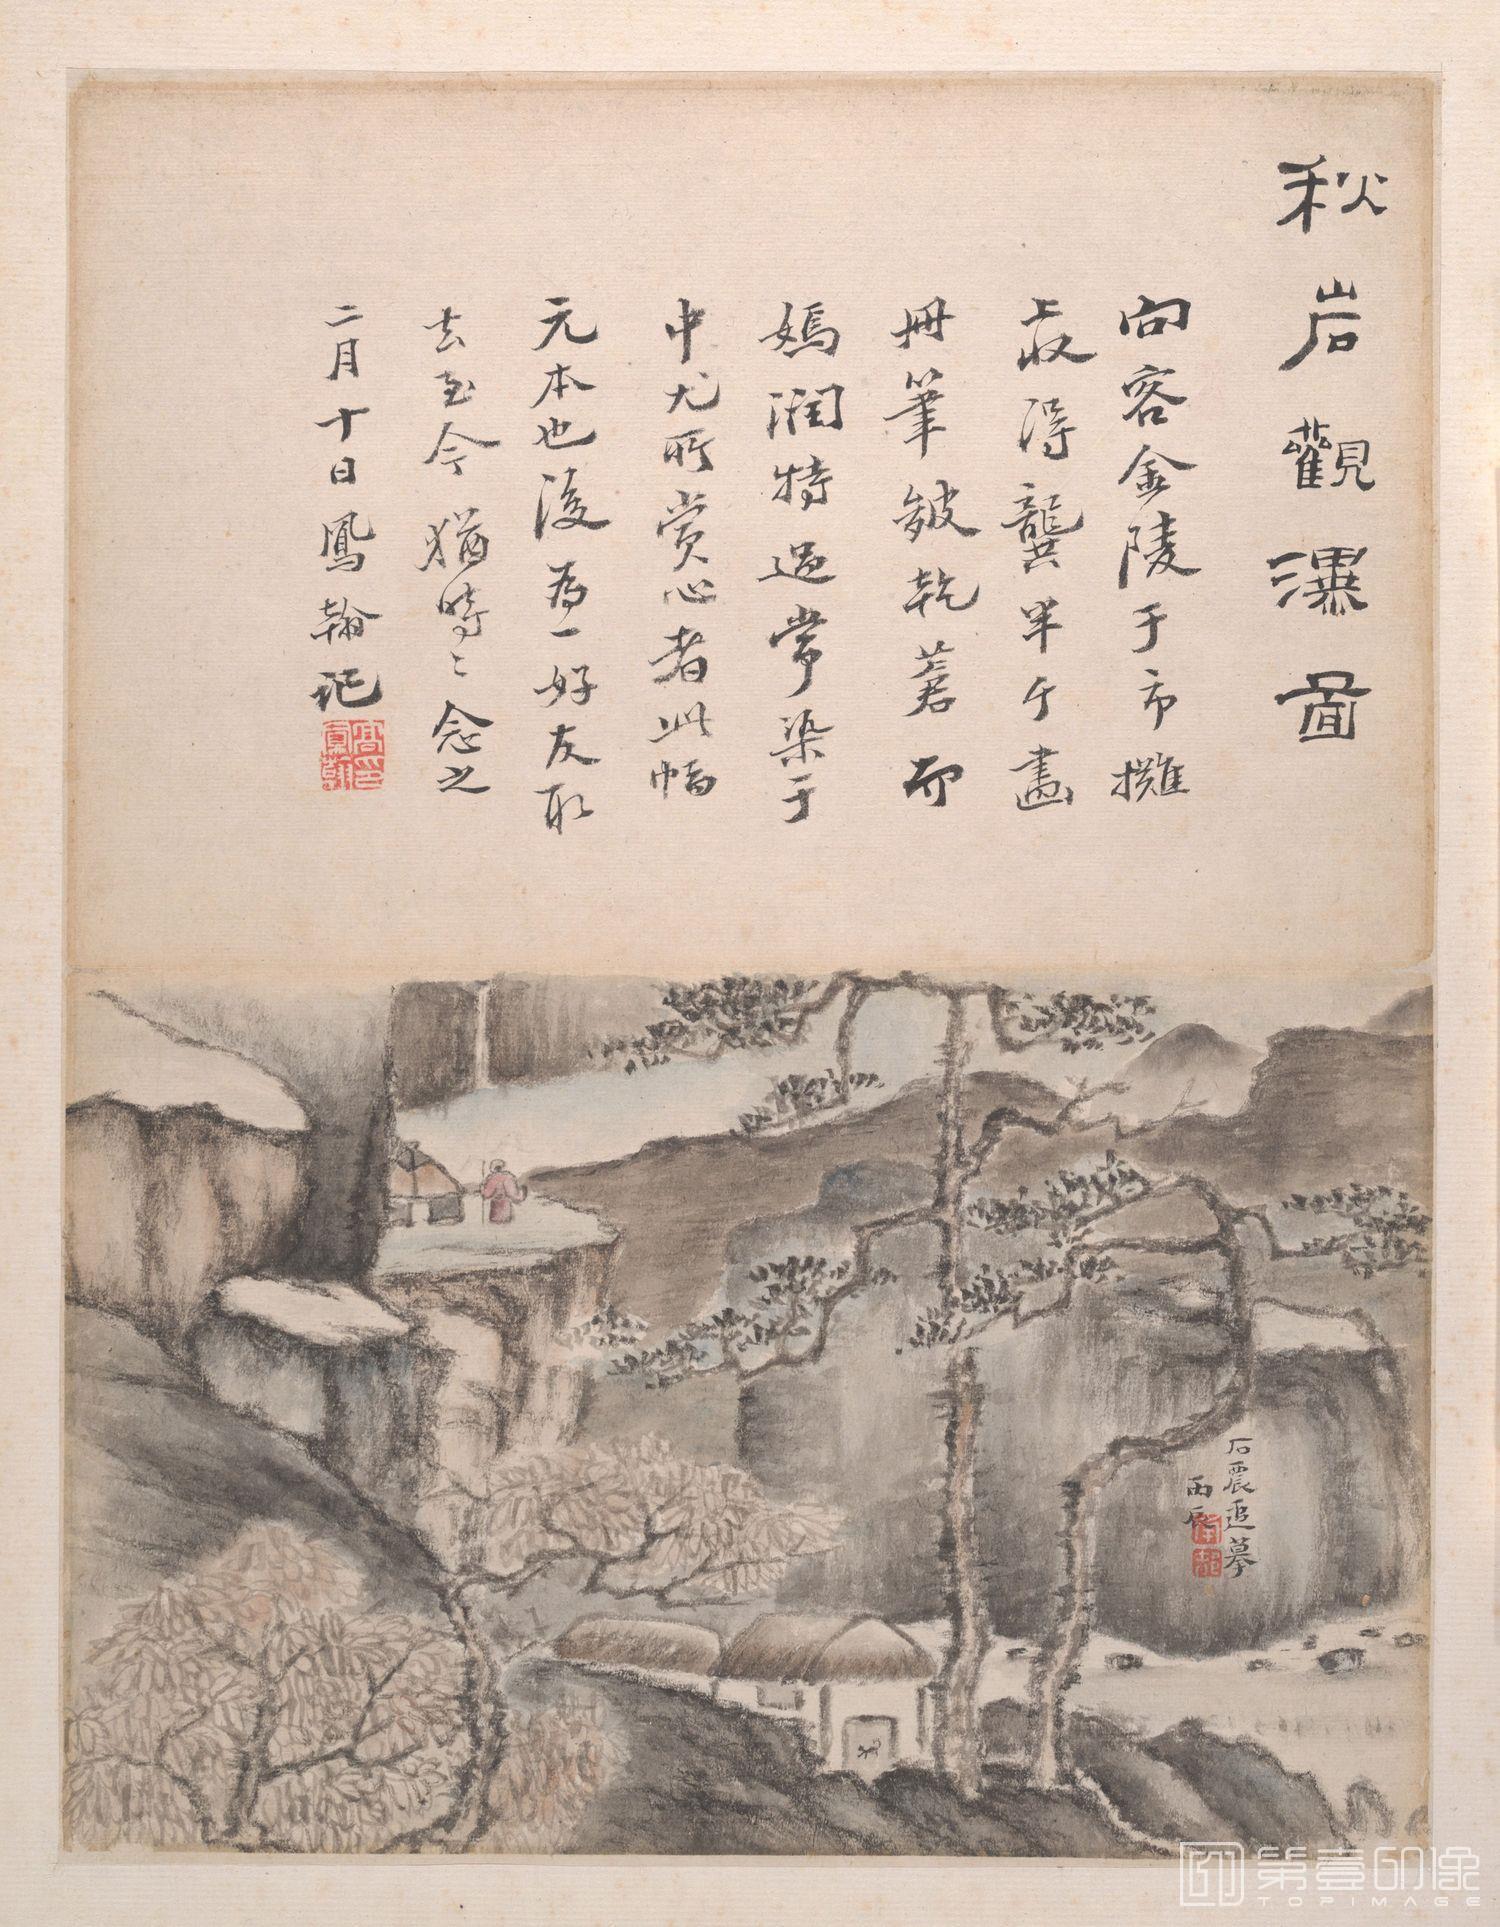 秋岩觀瀑啚
向客金陵于市攤
上收得龔半千畫
冊筆皴乾蒼而
嫣潤特過常染于
中尤所賞心者此幅
元本也後為一好友取
去至今猶時〻念之
二月十日鳳翰記
石震追摹
丙辰
第壹印像
TOPIMAGE